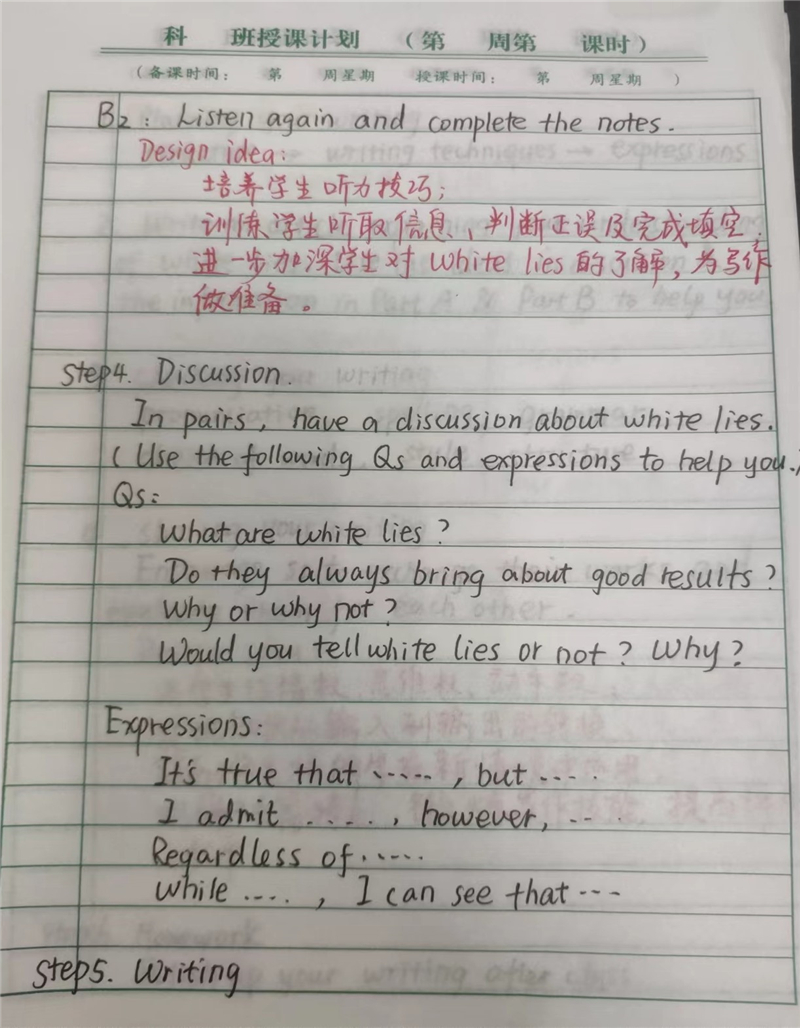 科 班授课计划 （第 周第 课时）
（备课时间： 第 周星期 授课时间： 第 周星期 ）
B2: Listen again and complete the notes.
Design idea:
培养学生听力技巧；
训练学生听取信息、判断正误及完成填空.
进一步加深学生对 white lies 的了解，为写作
做准备。
Step4. Discussion.
In pairs, have a discussion about white lies.
(Use the following Qs and expressions to help you.)
Qs:
What are white lies?
Do they always bring about good results?
Why or why not?
Would you tell white lies or not? Why?
Expressions:
It's true that ......, but ....
I admit ....., however, ....
Regardless of .....
While ...., I can see that ...
Step5. Writing